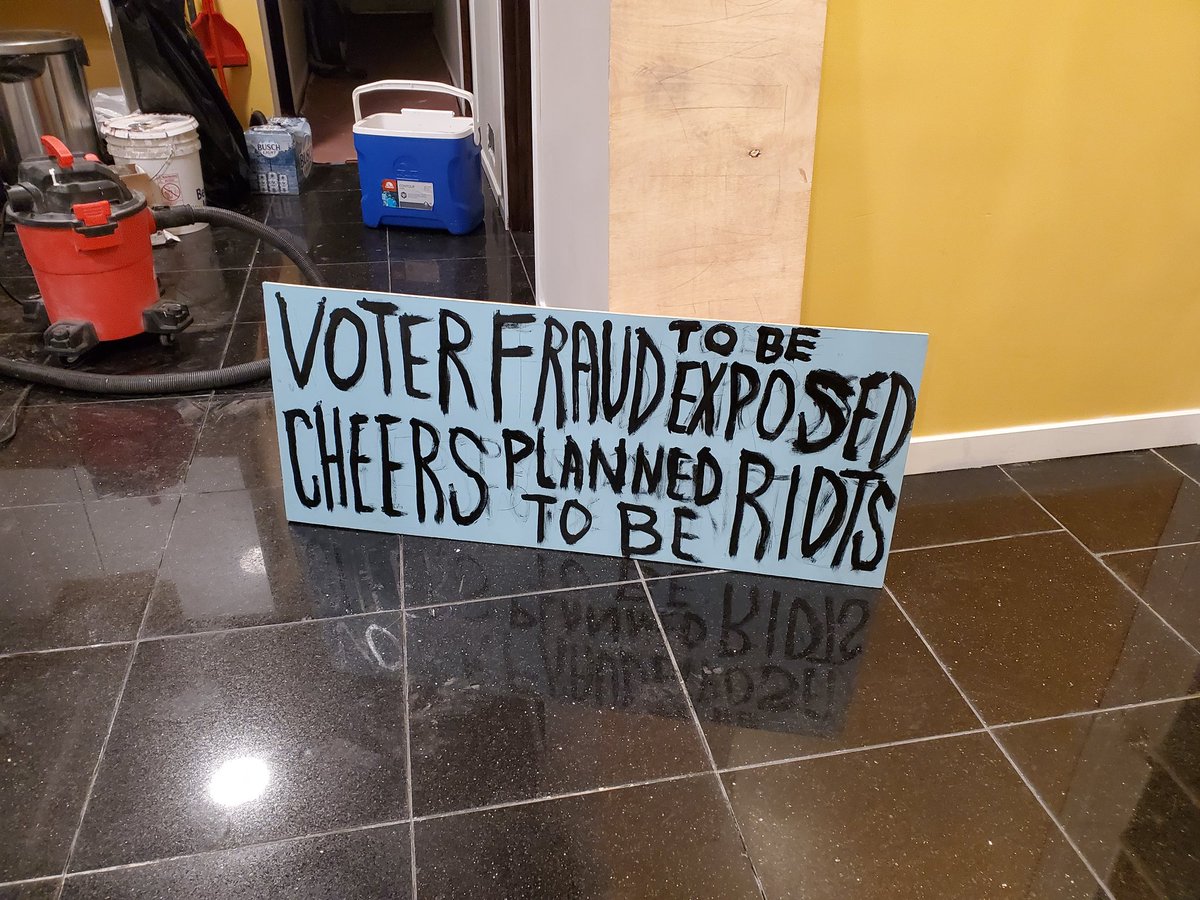 VOTER FRAUD TO BE EXPOSED
CHEERS PLANNED TO BE RIOTS
BUSCH
LIGHT